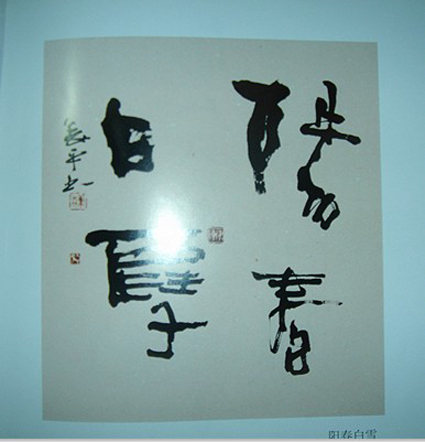 陽春
白雪
阳春白雪